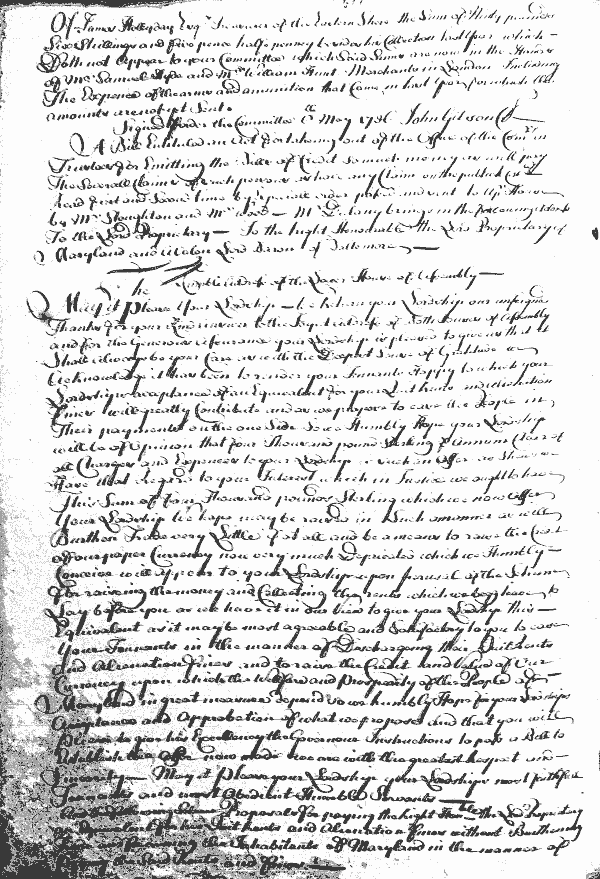 Of James Hollyday Esqr Treasurer of the Eastern Shore the Sum of thirty pounds
Six Shillings and five pence half penny last year which
Doth not appear to your Committee which Said Sums are now in the Hands
of Mr Samuel Hyde and Mr William Hunt Merchants in London
The Expence of the arms and amunition that Came in last year for which the
amounts are not yet Sent.
Signed Order the Committee May 1736 John Gibson
A Bill Entituled an Act for taking out of the Office of the
Trustees for Emitting the Bills of Credit Somuch money as will pay
The Severall Claims of Such persons as have any Claim on the publick
Read first and Second time by Special order past and Sent to Uper House
by Mr Stoughton and Mr
To the Lord Proprietary To the Right Honourable the Lord Proprietary of
Maryland and Avalon Lord Baron of Baltemore
The Address of the Lower House of Assembly
May it Please Your Lordship we return your Lordship our unfeigned
Thanks for your to the of Both Houses of Assembly
and for the Generous your Lordship is pleased to give us that it
Shall always be your Care as with the Deepest Sense of Gratitude we
Acknowledge it has been to render your Tennants Happy to which your
Lordships acceptance of an Equivalent for your Quit Rents and alienation
Fines will greatly Contribute and as we propose to ease the People in
Their payments on the one Side So we Humbly Hope your Lordship
will be of Opinion that four Thousand pounds Sterling Annum Clear of
all Charges and Expences to your Lordship is Such an Offer as Shews we
Have that Regard to your Interest which in Justice we ought to have
This Sum of four Thousand pounds Sterling which we now Offer
Your Lordship We hope may be raised in Such a manner as will
Burthen Trade very Little if at all and be a means to raise the Credit
of our paper Currency now very much Depreciated which we Humbly
Conceive will appear to your Lordship upon perusal of the Scheme
For raising the money and Collecting the rents which we beg leave to
Lay before you as we have it in our View to give your Lordship this
Equivalent as it may be most agreeable and Satisfactory to you to ease
Your Tennants in the manner of Discharging their Quit Rents
And Alienation Fines and to raise the Credit and Value of Our
Currency upon which the Wellfare and Prosperity of the People of
Maryland in great measure depend so we humbly Hope for your Lordships
Acceptance and Approbation of what we propose and that you will
Please to give his Excellency the Governour Instructions to pass a Bill to
Establish the Offer now made we are with the greatest respect and
Sincerity May it please your Lordship your Lordships most faithfull
Tennants and most Obedient Humble Servants
Proposals for paying the Right the Lord Proprietary
an Equivalent for his Quit Rents and Alienation Fines without Burthening
Trade and for easing the Inhabitants of Maryland in the manner of
paying the Said Rents and Fines